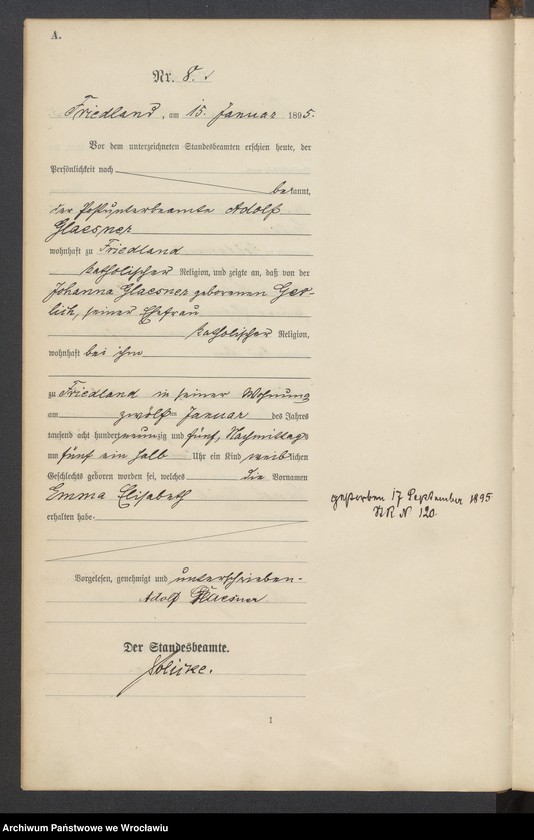 A.
Nr. 8.
Friedland, am 15. Januar 1895.
Vor dem unterzeichneten Standesbeamten erschien heute, der
Persönlichkeit nach
bekannt,
der Postunterbeamte Adolf
Glaesner
wohnhaft zu Friedland
katholischer Religion, und zeigte an, daß von der
Johanna Glaesner geborenen Ger-
lich, seiner Ehefrau
katholischer Religion,
wohnhaft bei ihm
zu Friedland in seiner Wohnung
am zwölften Januar des Jahres
tausend acht hundert neunzig und fünf, Nachmittags
um fünf ein halb Uhr ein Kind weiblichen
Geschlechts geboren worden sei, welches die Vornamen
Emma Elisabeth
erhalten habe.
gestorben 17 September 1895
StR N 120.
Vorgelesen, genehmigt und unterschrieben.
Adolf Glaesner
Der Standesbeamte.
1
Archiwum Państwowe we Wrocławiu